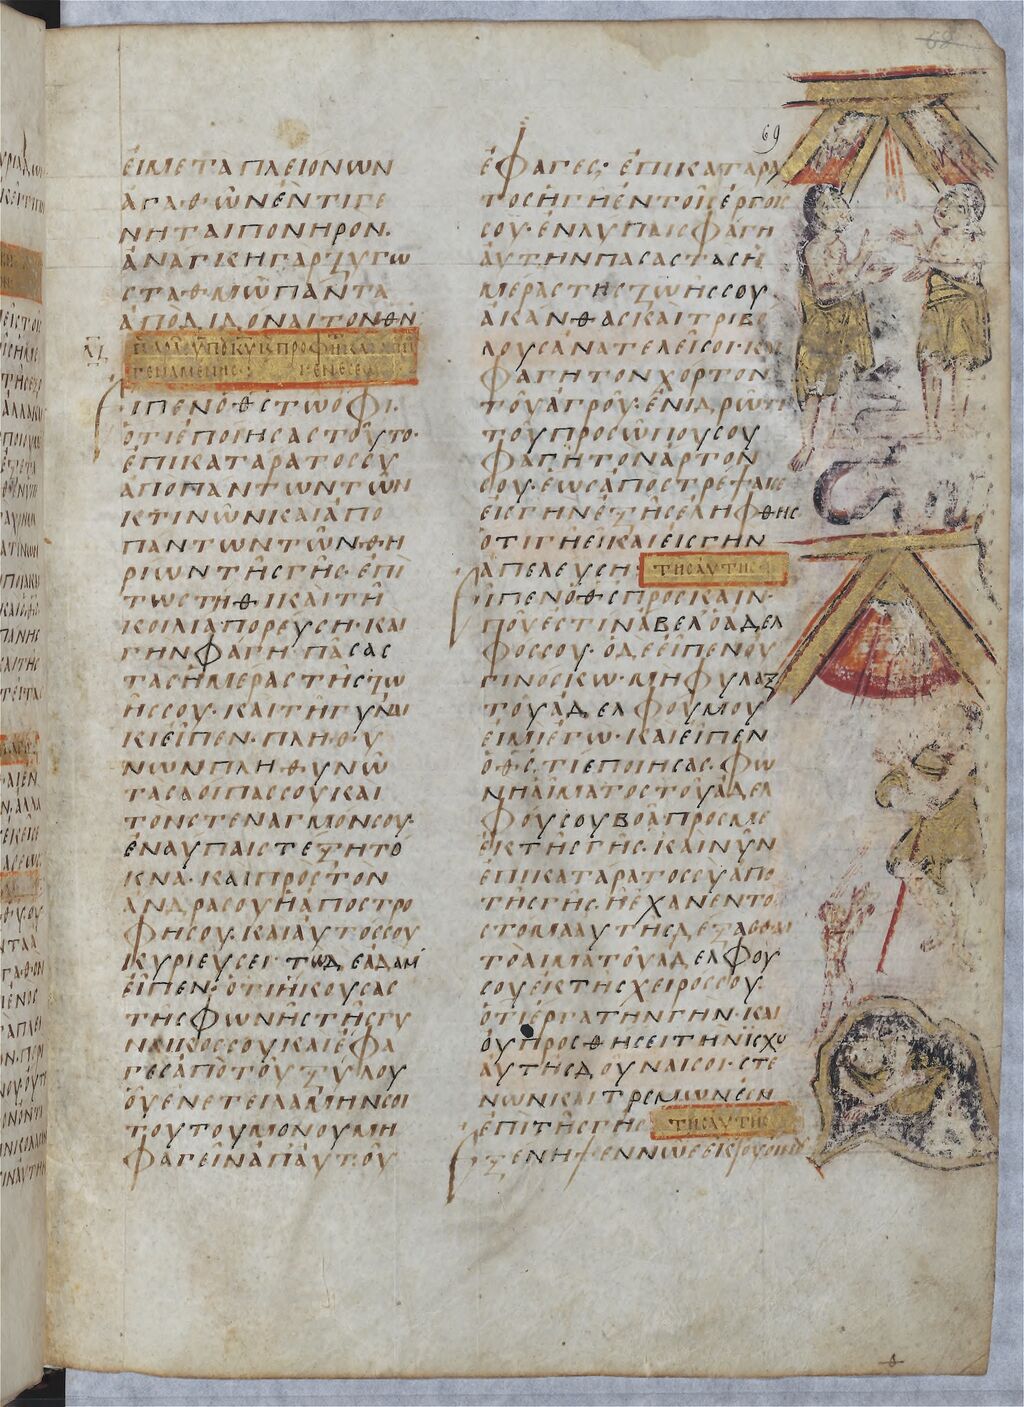 69
ΕΙΜΕΤΑΠΛΕΙΟΝΩΝ
ΑΓΑΘΩΝΕΝΤΙΓΕ
ΝΗΤΑΙΠΟΝΗΡΟΝ·
ΑΝΑΓΚΗΓΑΡΖΥΓΩ
ΣΤΑΘΜΩΠΑΝΤΑ
ΑΠΟΔΙΔΟΝΑΙΤΟΝΘΝ
·ΙΠΕΝΟΘΣΤΩΟΦΙ·
ΟΤΙΕΠΟΙΗΣΑΣΤΟΥΤΟ·
ΕΠΙΚΑΤΑΡΑΤΟΣΣΥ
ΑΠΟΠΑΝΤΩΝΤΩΝ
ΚΤΙΝΩΝΚΑΙΑΠΟ
ΠΑΝΤΩΝΤΩΝΘΗ
ΡΙΩΝΤΗΣΓΗΣ·ΕΠΙ
ΤΩΣΤΗΘΙΚΑΙΤΗ
ΚΟΙΛΙΑΠΟΡΕΥΣΗ·ΚΑΙ
ΓΗΝΦΑΓΗ·ΠΑΣΑΣ
ΤΑΣΗΜΕΡΑΣΤΗΣΖΩ
ΗΣΣΟΥ·ΚΑΙΤΗΓΥΝΑΙ
ΚΙΕΙΠΕΝ·ΠΛΗΘΥ
ΝΩΝΠΛΗΘΥΝΩ
ΤΑΣΛΟΙΠΑΣΣΟΥΚΑΙ
ΤΟΝΣΤΕΝΑΓΜΟΝΣΟΥ·
ΕΝΛΥΠΑΙΣΤΕΞΗΤΟ
ΚΝΑ·ΚΑΙΠΡΟΣΤΟΝ
ΑΝΔΡΑΣΟΥΗΑΠΟΣΤΡΟ
ΦΗΣΟΥ·ΚΑΙΑΥΤΟΣΣΟΥ
ΚΥΡΙΕΥΣΕΙ·ΤΩΔΕΑΔΑΜ
ΕΙΠΕΝ·ΟΤΙΗΚΟΥΣΑΣ
ΤΗΣΦΩΝΗΣΤΗΣΓΥ
ΝΑΙΚΟΣΣΟΥΚΑΙΕΦΑ
ΓΕΣΑΠΟΤΟΥΞΥΛΟΥ
ΟΥΕΝΕΤΕΙΛΑΜΗΝΣΟΙ
ΤΟΥΤΟΥΜΟΝΟΥΜΗ
ΦΑΓΕΙΝΑΠΑΥΤΟΥ
ΕΦΑΓΕΣ· ΕΠΙΚΑΤΑΡΑ
ΤΟΣΗΓΗΕΝΤΟΙΣΕΡΓΟΙΣ
ΣΟΥ·ΕΝΛΥΠΑΙΣΦΑΓΗ
ΑΥΤΗΝΠΑΣΑΣΤΑΣΗ
ΜΕΡΑΣΤΗΣΖΩΗΣΣΟΥ
ΑΚΑΝΘΑΣΚΑΙΤΡΙΒΟ
ΛΟΥΣΑΝΑΤΕΛΕΙΣΟΙ·ΚΑΙ
ΦΑΓΗΤΟΝΧΟΡΤΟΝ
ΤΟΥΑΓΡΟΥ·ΕΝΙΔΡΩΤΙ
ΤΟΥΠΡΟΣΩΠΟΥΣΟΥ
ΦΑΓΗΤΟΝΑΡΤΟΝ
ΣΟΥ·ΕΩΣΑΠΟΣΤΡΕΨΑΙΣΕ
ΕΙΣΓΗΝΕΞΗΣΕΛΗΦΘΗΣ
ΟΤΙΓΗΕΙΚΑΙΕΙΣΓΗΝ
ΑΠΕΛΕΥΣΗ· ΤΗΣΑΥΤΗΣ
ΙΠΕΝΟΘΣΠΡΟΣΚΑΙΝ·
ΠΟΥΕΣΤΙΝΑΒΕΛΟΑΔΕΛ
ΦΟΣΣΟΥ·ΟΔΕΕΙΠΕΝΟΥ
ΓΙΝΟΣΚΩ·ΜΗΦΥΛΑΞ
ΤΟΥΑΔΕΛΦΟΥΜΟΥ
ΕΙΜΙΕΓΩ·ΚΑΙΕΙΠΕΝ
ΟΘΣ·ΤΙΕΠΟΙΗΣΑΣ·ΦΩ
ΝΗΑΙΜΑΤΟΣΤΟΥΑΔΕΛ
ΦΟΥΣΟΥΒΟΑΠΡΟΣΜΕ
ΕΚΤΗΣΓΗΣ·ΚΑΙΝΥΝ
ΕΠΙΚΑΤΑΡΑΤΟΣΣΥΑΠΟ
ΤΗΣΓΗΣ·ΗΕΧΑΝΕΝΤΟ
ΣΤΟΜΑΑΥΤΗΣΔΕΞΑΣΘΑΙ
ΤΟΑΙΜΑΤΟΥΑΔΕΛΦΟΥ
ΣΟΥΕΚΤΗΣΧΕΙΡΟΣΣΟΥ·
ΟΤΙΕΡΓΑΤΗΝΓΗΝ·ΚΑΙ
ΟΥΠΡΟΣΘΗΣΕΙΤΗΝΙΣΧΥ
ΑΥΤΗΣΔΟΥΝΑΙΣΟΙ·ΣΤΕ
ΝΩΝΚΑΙΤΡΕΜΩΝΕΣΗ
ΕΠΙΤΗΣΓΗΣ ΤΗΣΑΥΤΗΣ